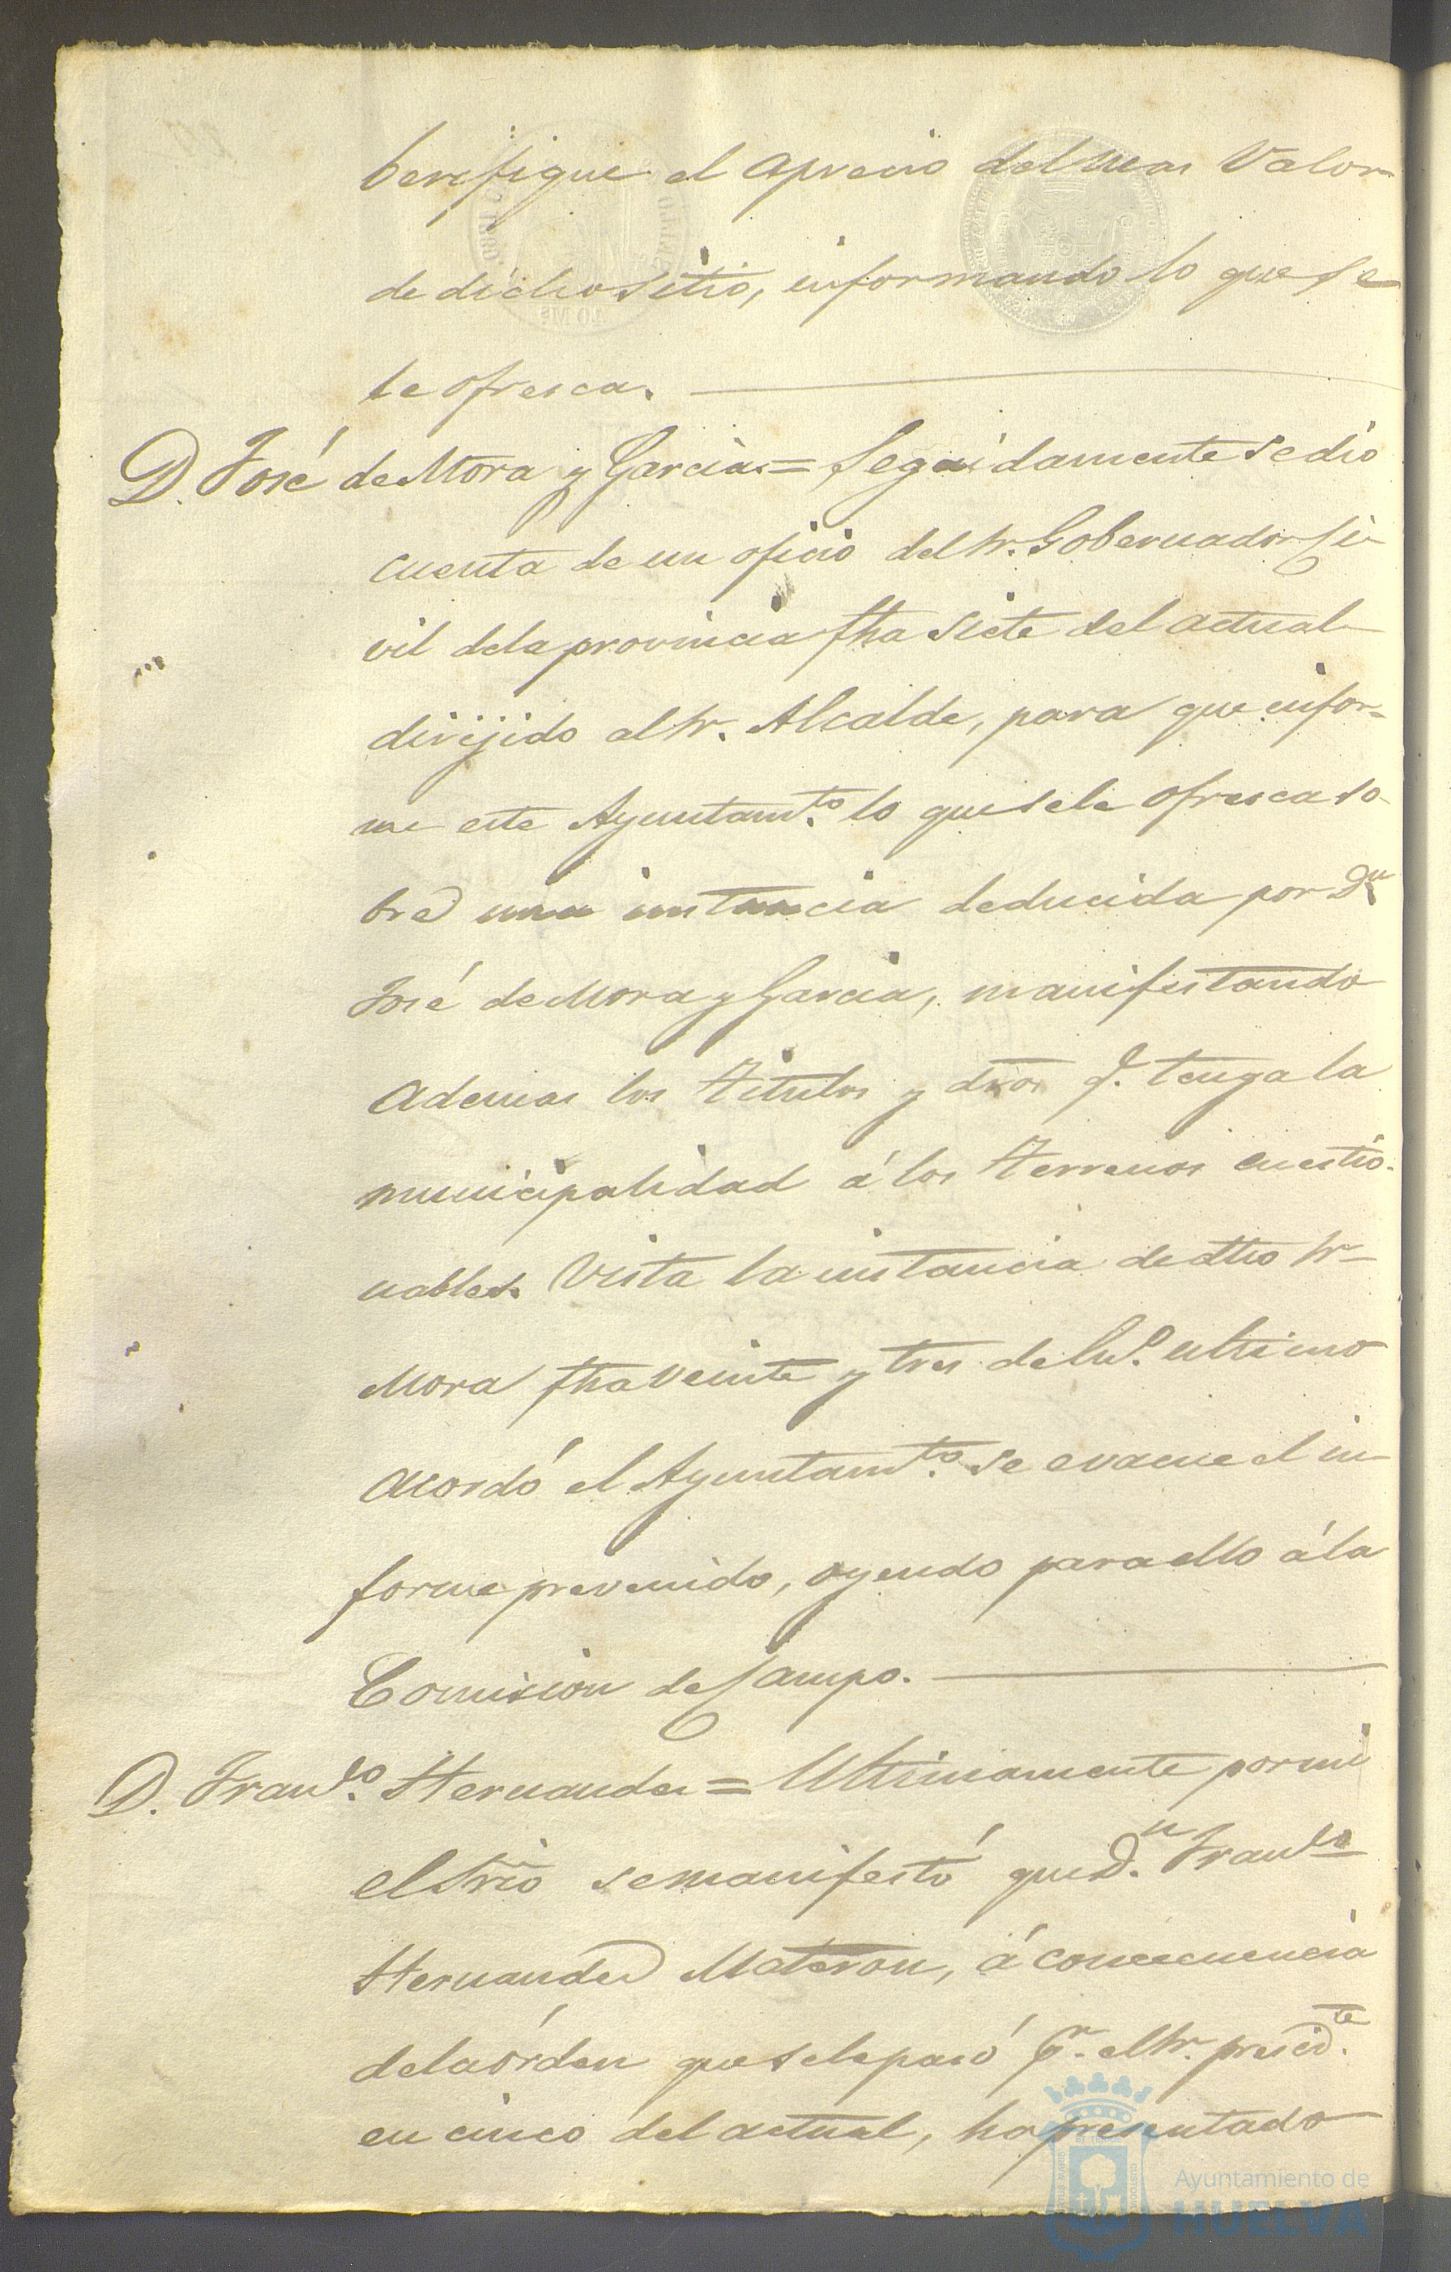 berifique el aprecio del mas Valor
de dicho sitio, informando lo que se
le ofresca.
D. José de Mora y Garcia = Seguidamente se dió
cuenta de un oficio del Sr. Gobernador Ci-
vil dela provincia fha siete del actual
dirijido al Sr. Alcalde, para que infor-
me este Ayuntamto. lo que sele ofresca so-
bre una instancia deducida por Dn.
José de Mora y Garcia, manifestando
Ademas los Titulos y dros q. tenga la
municipalidad á los Terrenos cuestio-
nables. Vista la instancia de dho Sr.
Mora fha veinte y tres de En.º ultimo
acordó el Ayuntamto. se evacue el in-
forme prevenido, oyendo para ello á la
Comision de Campo.
D. Franco. Hernandez = Ultimamente por mi
el Srio se manifestó que Dn. Franco.
Hernandez Materon, á concecuencia
de la órden que sele pasó pr. el Sr. presidte.
en cinco del actual, ha presentado
40 Ms
Ayuntamiento de
HUELVA